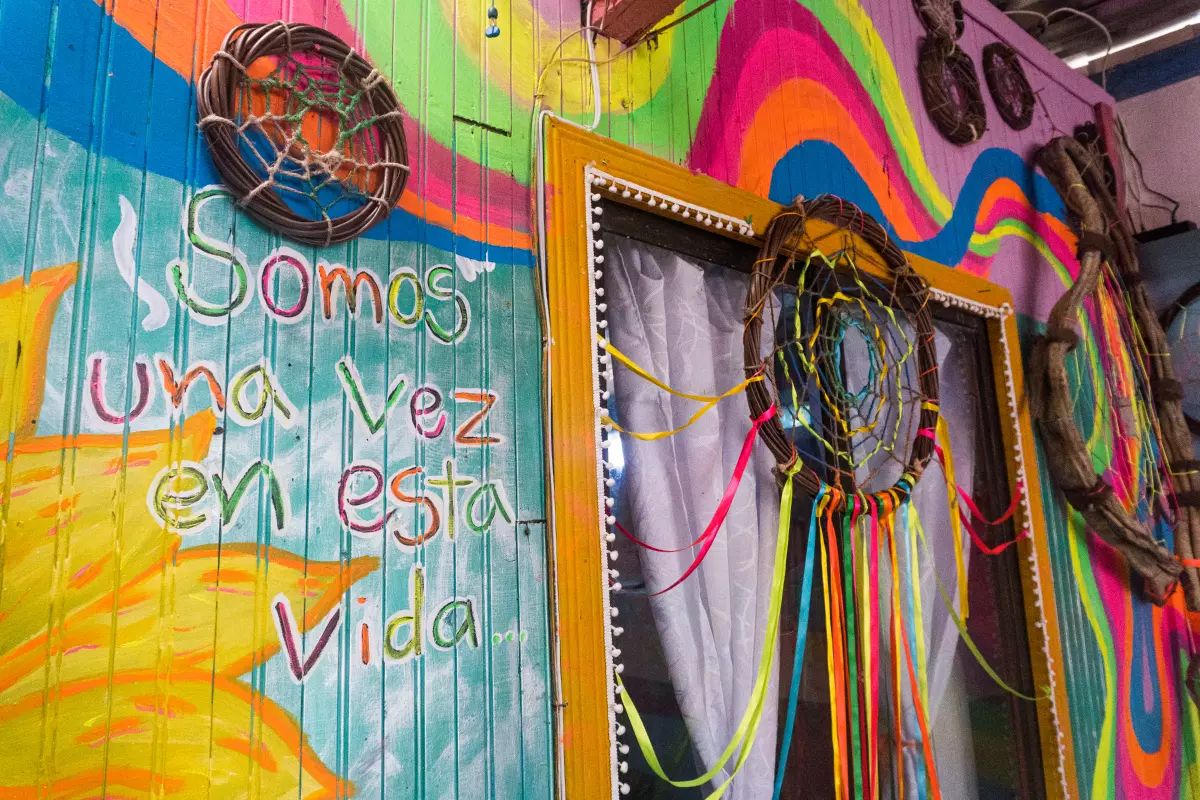 Somos
una vez
en esta
Vida...